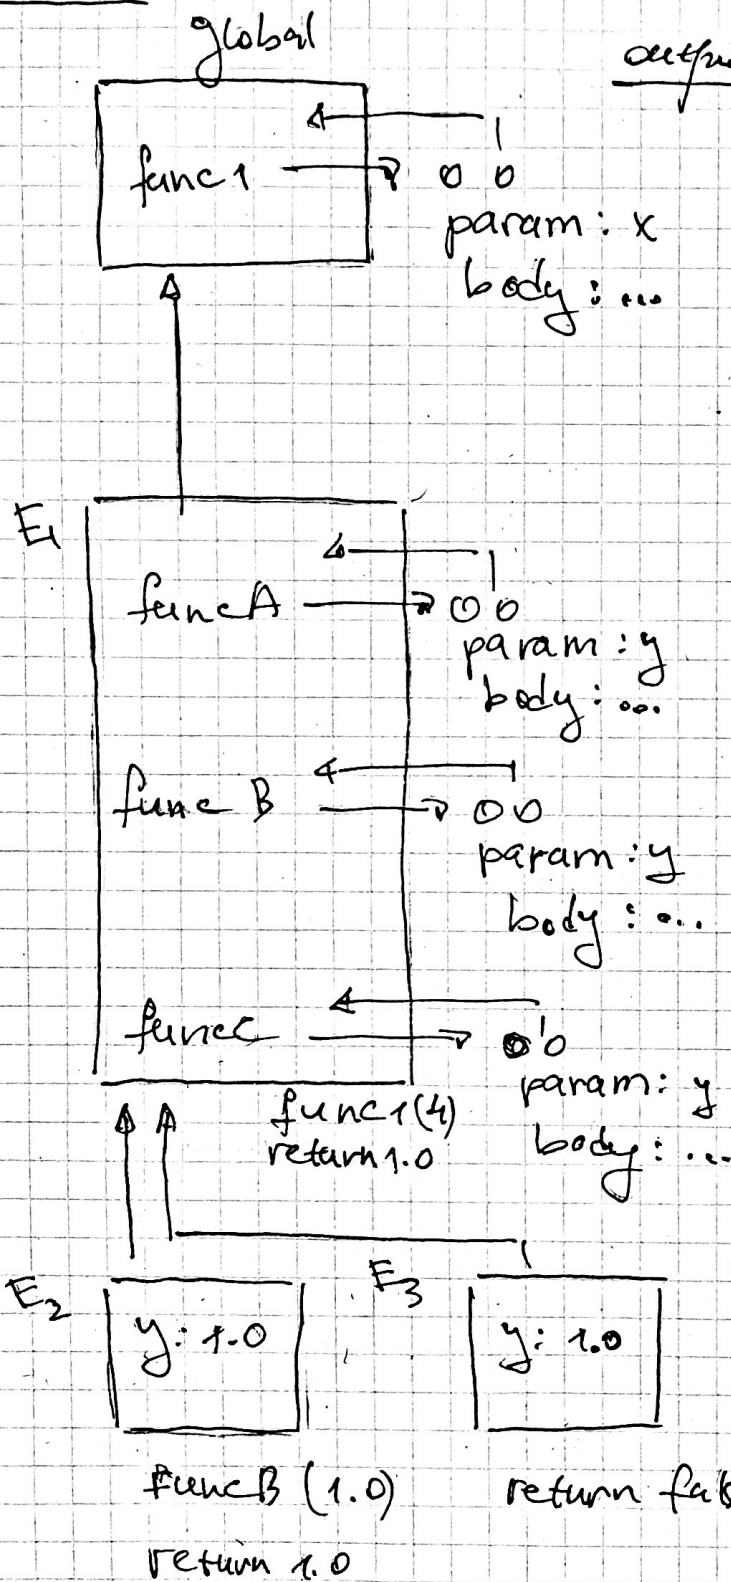 global
func1
param: x
body: ...
E1
funcA
param: y
body: ...
func B
param: y
body: ...
funcC
param: y
body: ...
func1(4)
return 1.0
E2
y: 1.0
E3
y: 1.0
funcB (1.0)
return 1.0
return